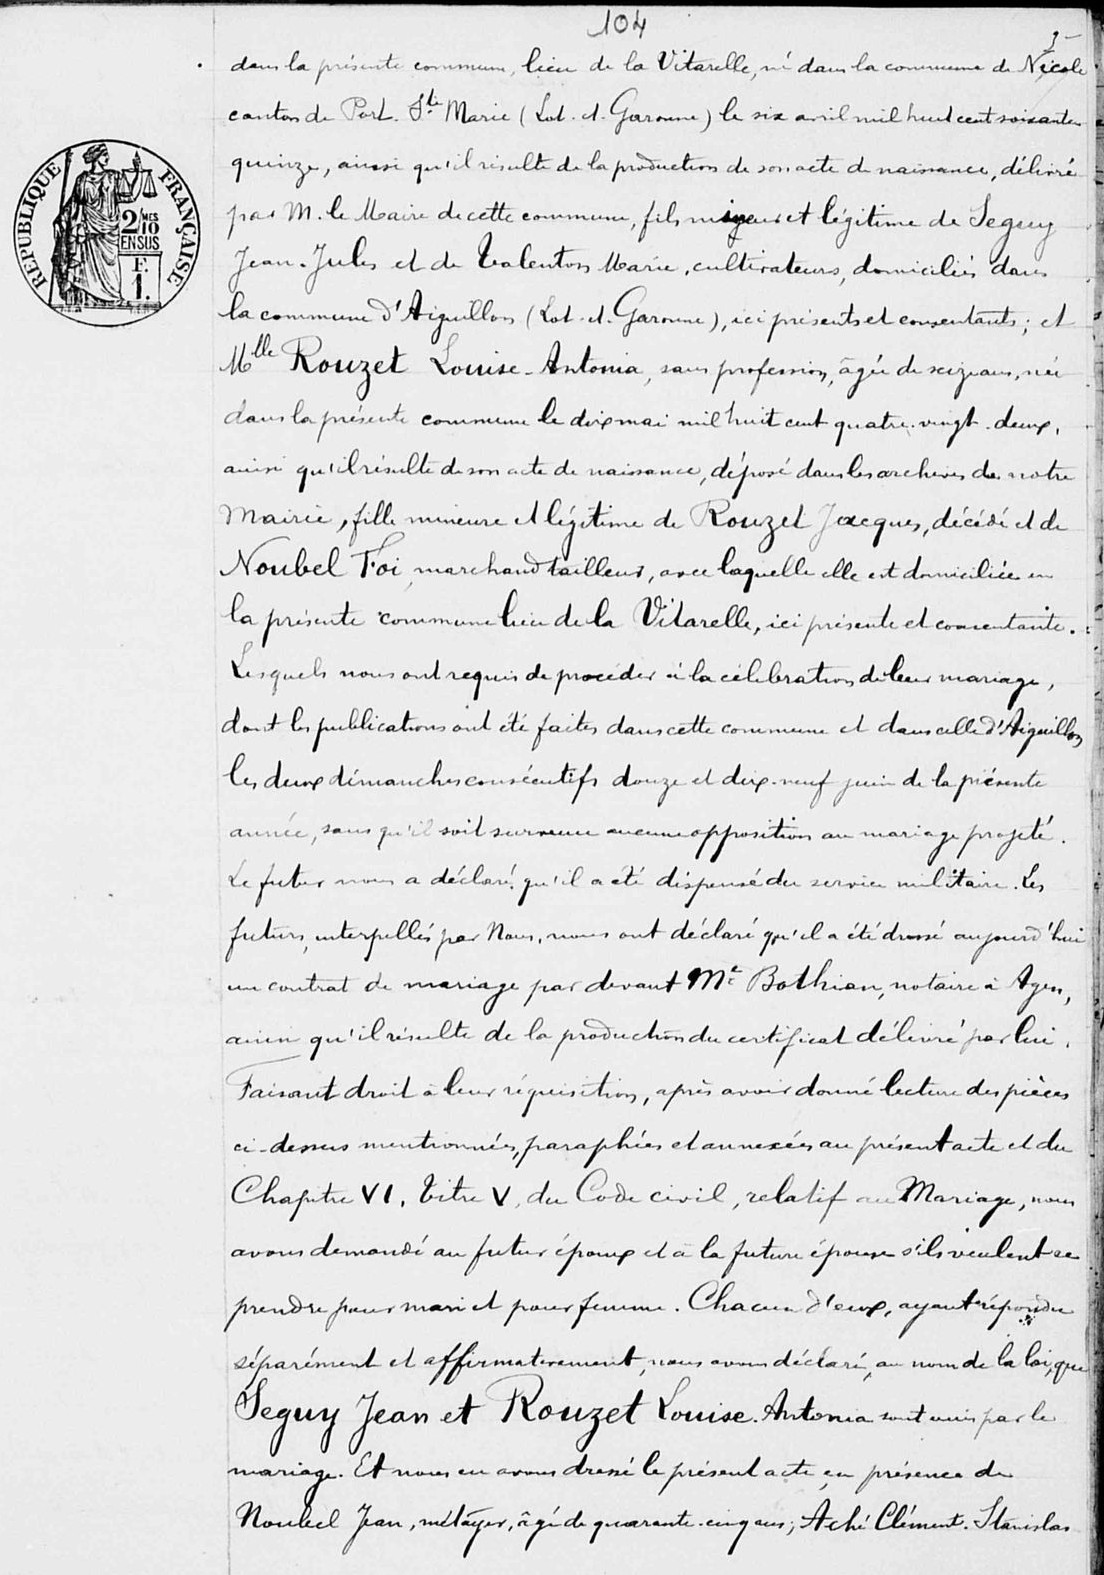 104
2
dans la présente commune, lieu de la Vitarelle, né dans la commune de Nicole
canton de Port-Ste Marie (Lot-et-Garonne) le six avril mil huit cent soixante
quinze, ainsi qu'il résulte de la production de son acte de naissance, délivré
par M. le Maire de cette commune, fils majeur et légitime de Seguy
Jean-Jules et de Valenton Marie, cultivateurs, domiciliés dans
la commune d'Aiguillon (Lot-et-Garonne), ici présents et consentants; et
Mlle Rouzet Louise-Antonia, sans profession, âgée de seize ans, née
dans la présente commune le dix mai mil huit cent quatre-vingt-deux,
ainsi qu'il résulte de son acte de naissance, déposé dans les archives de notre
Mairie, fille mineure et légitime de Rouzet Jacques, décédé et de
Noubel Foi, marchand tailleur, avec laquelle elle est domiciliée en
la présente commune lieu de la Vitarelle, ici présente et consentante.
Lesquels nous ont requis de procéder à la célébration de leur mariage,
dont les publications ont été faites dans cette commune et dans celle d'Aiguillon
les deux dimanches consécutifs douze et dix-neuf juin de la présente
année, sans qu'il soit survenu aucune opposition au mariage projeté.
Le futur nous a déclaré qu'il a été dispensé du service militaire. Les
futurs, interpellés par Nous, nous ont déclaré qu'il a été dressé aujourd'hui
un contrat de mariage par devant Me Bathian, notaire à Agen,
ainsi qu'il résulte de la production du certificat délivré par lui.
Faisant droit à leur réquisition, après avoir donné lecture des pièces
ci-dessus mentionnées, paraphées et annexées au présent acte et du
Chapitre VI, titre V, du Code civil, relatif au Mariage, nous
avons demandé au futur époux et à la future épouse s'ils veulent se
prendre pour mari et pour femme. Chacun d'eux, ayant répondu
séparément et affirmativement, nous avons déclaré, au nom de la loi, que
Seguy Jean et Rouzet Louise-Antonia sont unis par le
mariage. Et nous en avons dressé le présent acte, en présence de
Noubel Jean, métayer, âgé de quarante-cinq ans; Aché Clément-Stanislas
RÉPUBLIQUE FRANÇAISE
2/10 MES
EN SUS
F.
1.